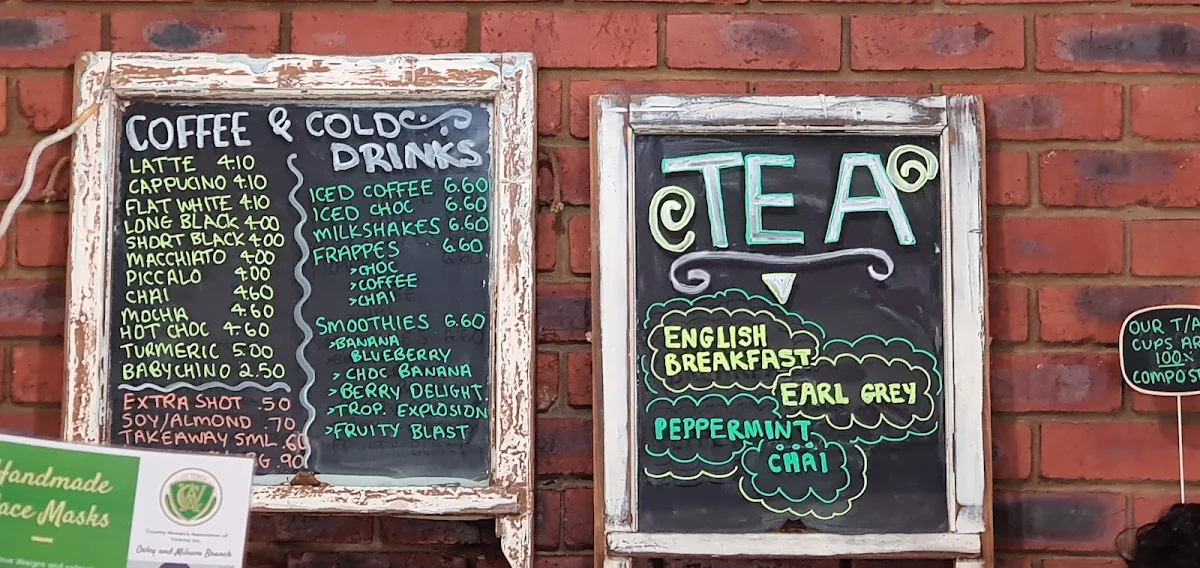 COFFEE & COLD
DRINKS
LATTE 4.10
CAPPUCINO 4.10
FLAT WHITE 4.10
LONG BLACK 4.00
SHORT BLACK 4.00
MACCHIATO 4.00
PICCALO 4.00
CHAI 4.60
MOCHA 4.60
HOT CHOC 4.60
TURMERIC 5.00
BABYCHINO 2.50
EXTRA SHOT .50
SOY/ALMOND .70
TAKEAWAY SML .60
.90
ICED COFFEE 6.60
ICED CHOC 6.60
MILKSHAKES 6.60
FRAPPES 6.60
>CHOC
>COFFEE
>CHAI
SMOOTHIES 6.60
>BANANA
BLUEBERRY
>CHOC BANANA
>BERRY DELIGHT
>TROP. EXPLOSION
>FRUITY BLAST
TEA
ENGLISH
BREAKFAST
EARL GREY
PEPPERMINT
CHAI
OUR T/A
CUPS AR
100%
COMPOST
Handmade
ace Masks
Country Women's Association of
Victoria Inc
Oxley and Milawa Branch